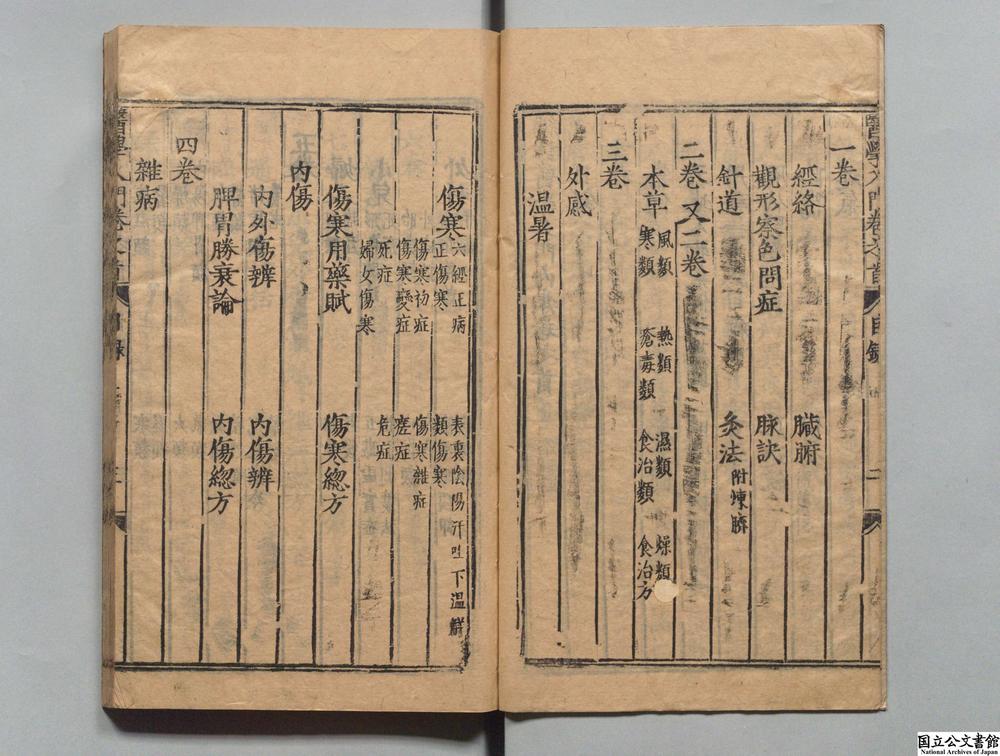 醫學入門卷之首 目錄 二
一卷
經絡 臟腑
觀形察色問症 脉訣
針道 灸法 附煉臍
二卷 又二卷
本草 風類 熱類 濕類 燥類
寒類 瘡毒類 食治類 食治方
三卷
外感
溫暑
傷寒 六經正病 表裏陰陽汗吐下溫解
正傷寒 類傷寒
傷寒初症 傷寒雜症
傷寒變症 瘥症
死症 危症
婦女傷寒
傷寒用藥賦 傷寒總方
內傷
內外傷辨 內傷辨
脾胃勝衰論 內傷總方
四卷
雜病
醫學入門卷之首 目錄
国立公文書館
National Archives of Japan